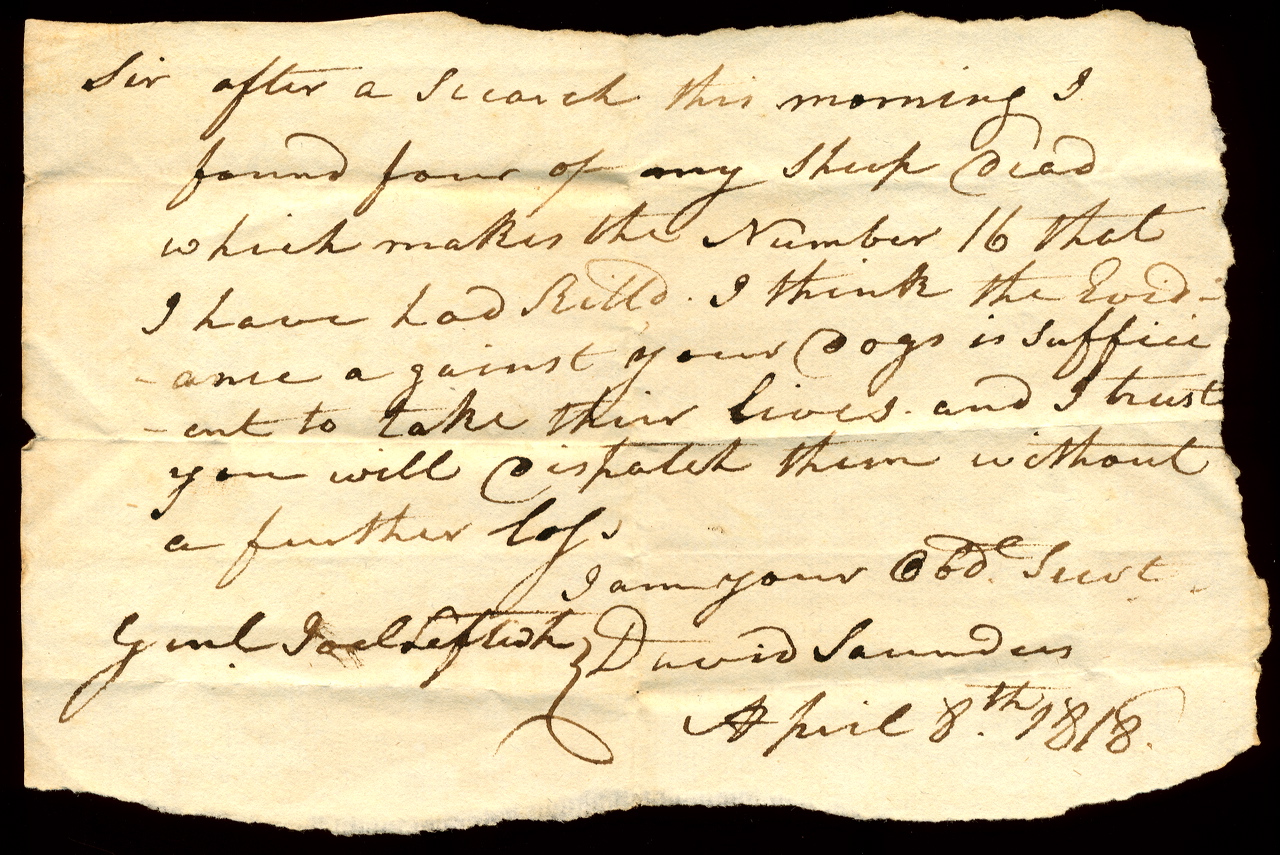 Sir after a Seearch this morning I
found four of my Sheep Dead
which makes the Number 16 that
I have had Killd. I think the Evid-
-ance against your Dogs is suffici
-ent to take their lives. and I trust
you will Dispatch them without
a further loss
I am your Obde. Servt.
Genl. Joel Leftwich } David Saunders
April 8th. 1818.